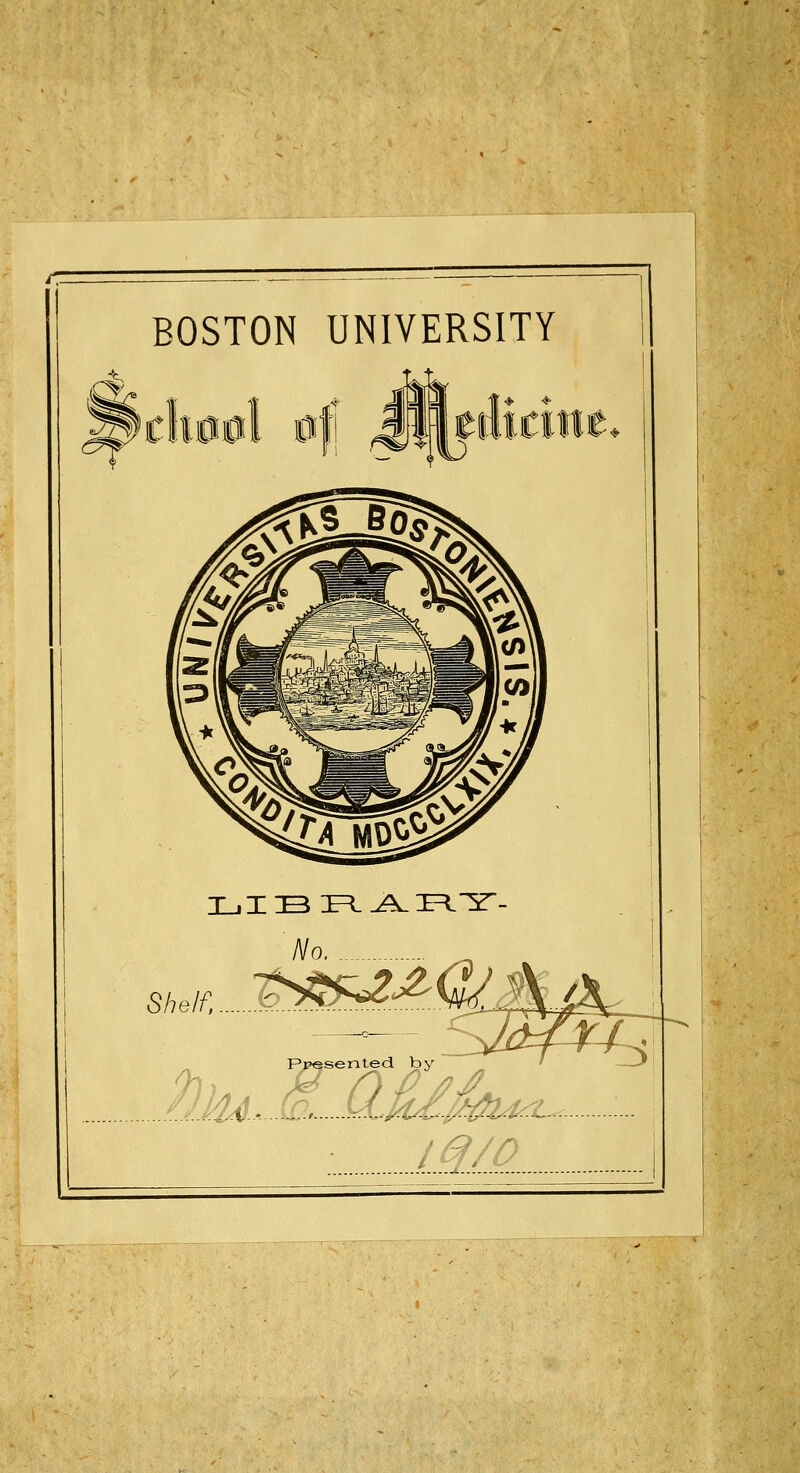 BOSTON UNIVERSITY
School of Medicine.
UNIVERSITAS BOSTONIENSIS.
★ CONDITA MDCCCLXIX. ★
LIBRARY-
No.
Shelf,
Presented by
1910